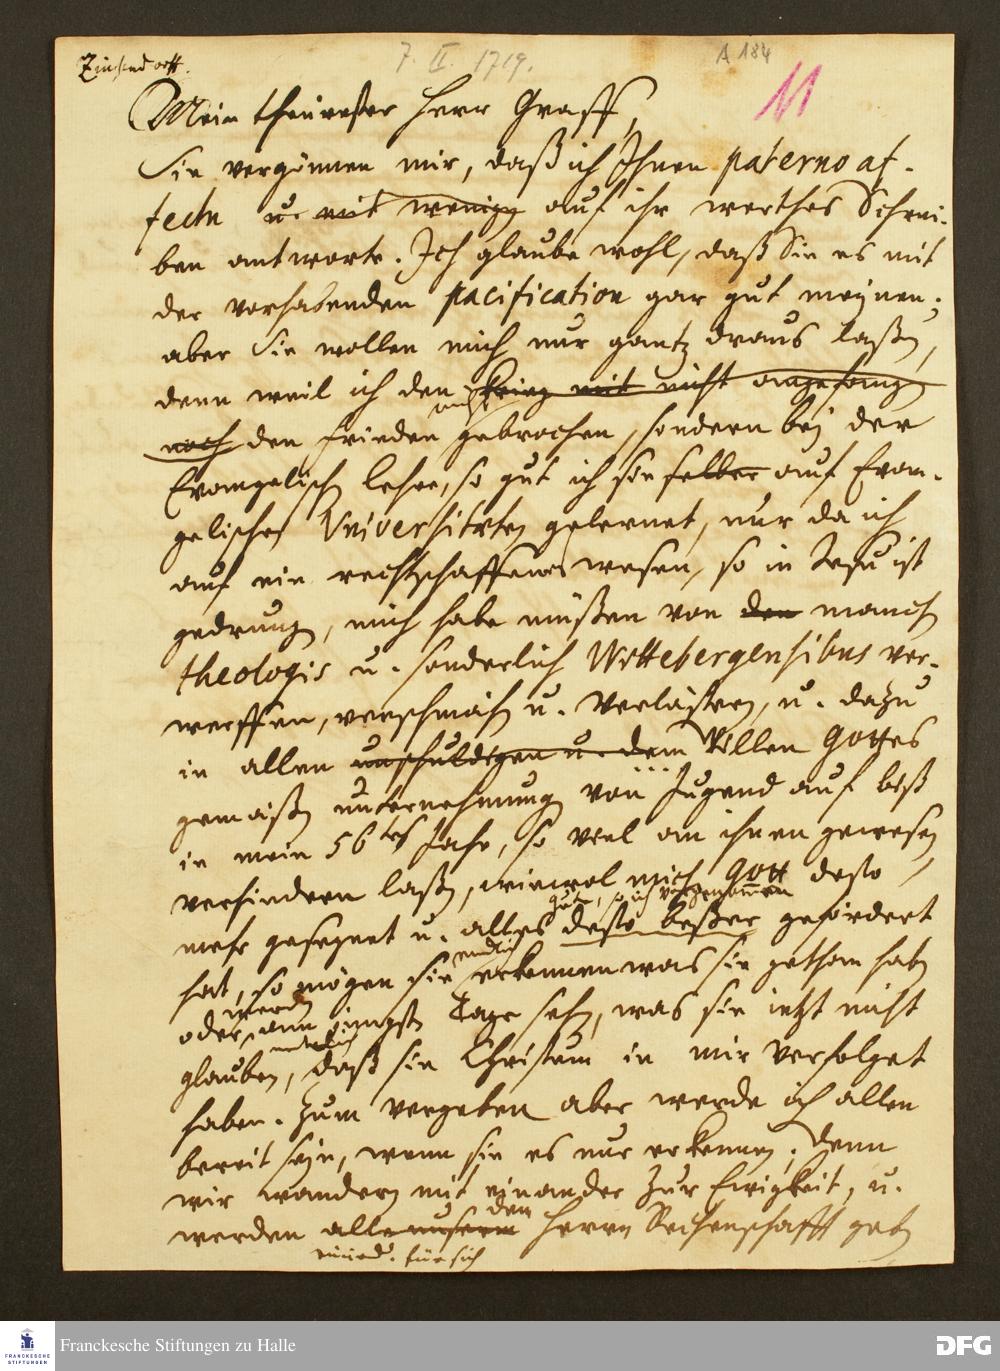 Zinsendorff.
7. II. 1719.
A 184
11
Mein theurester Herr Graff,
Sie vergönnen mir, daß ich Ihnen paterno af-
fectu u. mit wenigen auf ihr werthes Schrei-
ben antworte. Ich glaube wohl, daß Sie es mit
der vorhabenden pacification gar gut meynen;
aber Sie wollen mich nur gantz draus laßen,
denn weil ich den krieg mit nicht angefangen
nicht
noch den frieden gebrochen, sondern bey der
Evangelischen lehre, so gut ich sie selber auf Evan-
gelischen Universitæten gelernet, nur da ich
auf ein rechtschaffenes wesen, so in Jesu ist
gedrungen, mich habe müßen von den manchen
theologis u. sonderlich Wittebergensibus ver-
werffen, verschmähen u. verlästern, u. dazu
in allen unschuldigen u. dem Willen Gottes
gemäßen unternehmungen von Jugend auf biß
in mein 56tes Jahr, so viel an ihnen gewesen
verhindern laßen, wiewol mich Gott desto
gute, so ich vorgenommen
mehr gesegnet u. alles desto beßer gefördert
endlich
hat, so mögen sie erkennen was sie gethan haben
werden
oder am jüngsten Tage sehen, was sie ietzt nicht
glauben, daß sie Christum in mir verfolget
haben. Zum vergeben aber werde ich allen
bereit seyn, wenn sie es nur erkennen; denn
wir wandern mit einander zur Ewigkeit, u.
dem
werden alle unserm Herrn Rechenschafft geben
für sich
Franckesche Stiftungen zu Halle
FRANCKESCHE STIFTUNGEN
DFG